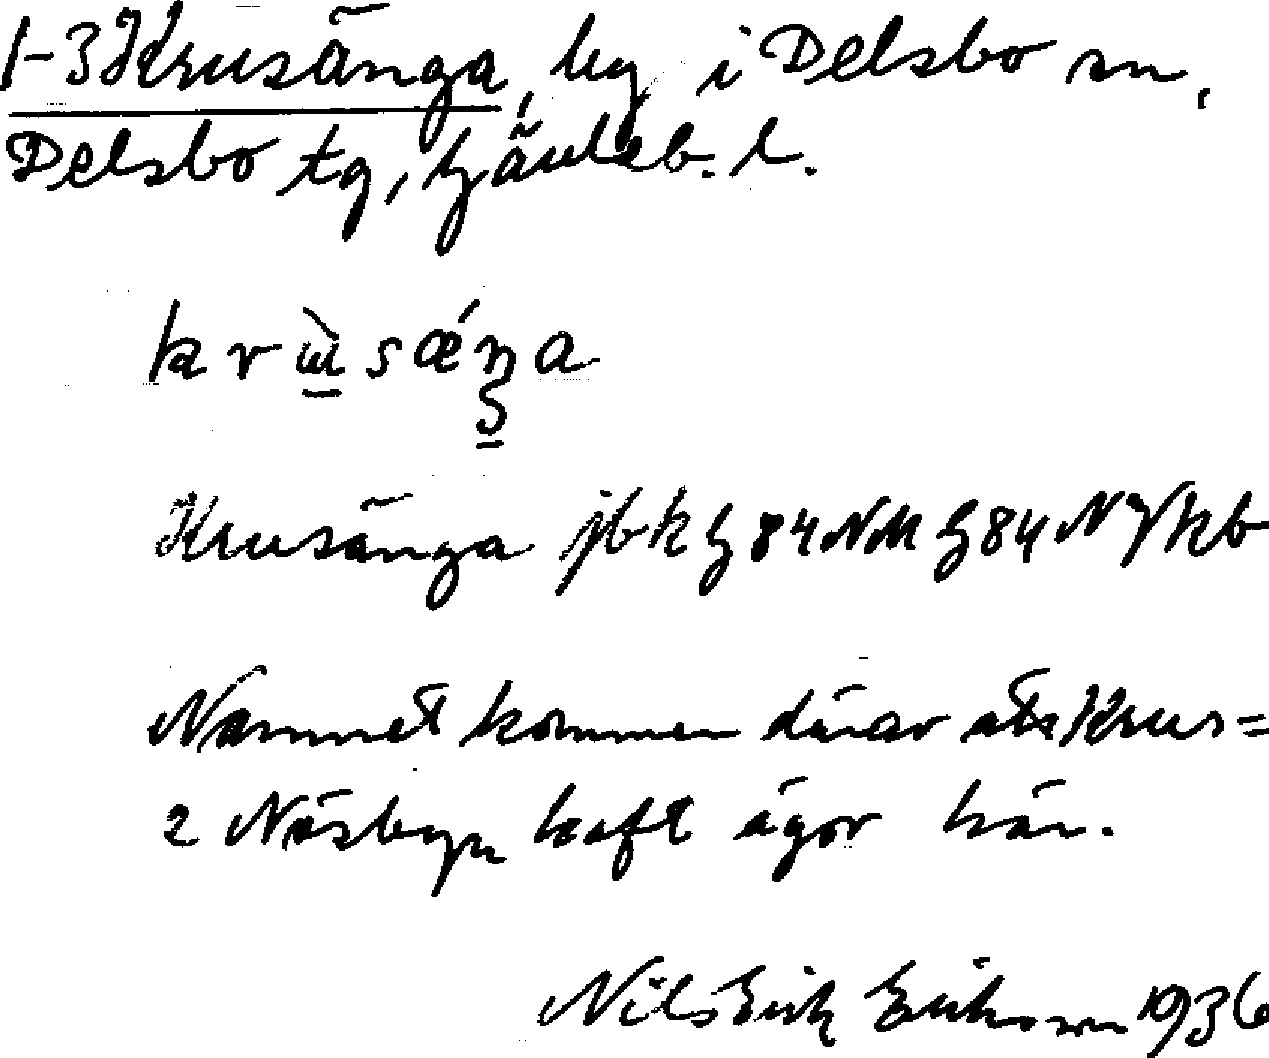 1-3 Krusänga, by i Delsbo sn,
Delsbo tg, Gävleb. l.
Krusänga jbk G 84 NM G 84 N
Namnet kommer därav att Krus=
Näsbyn haft ägor här.
Nils Erik Erikson 1936